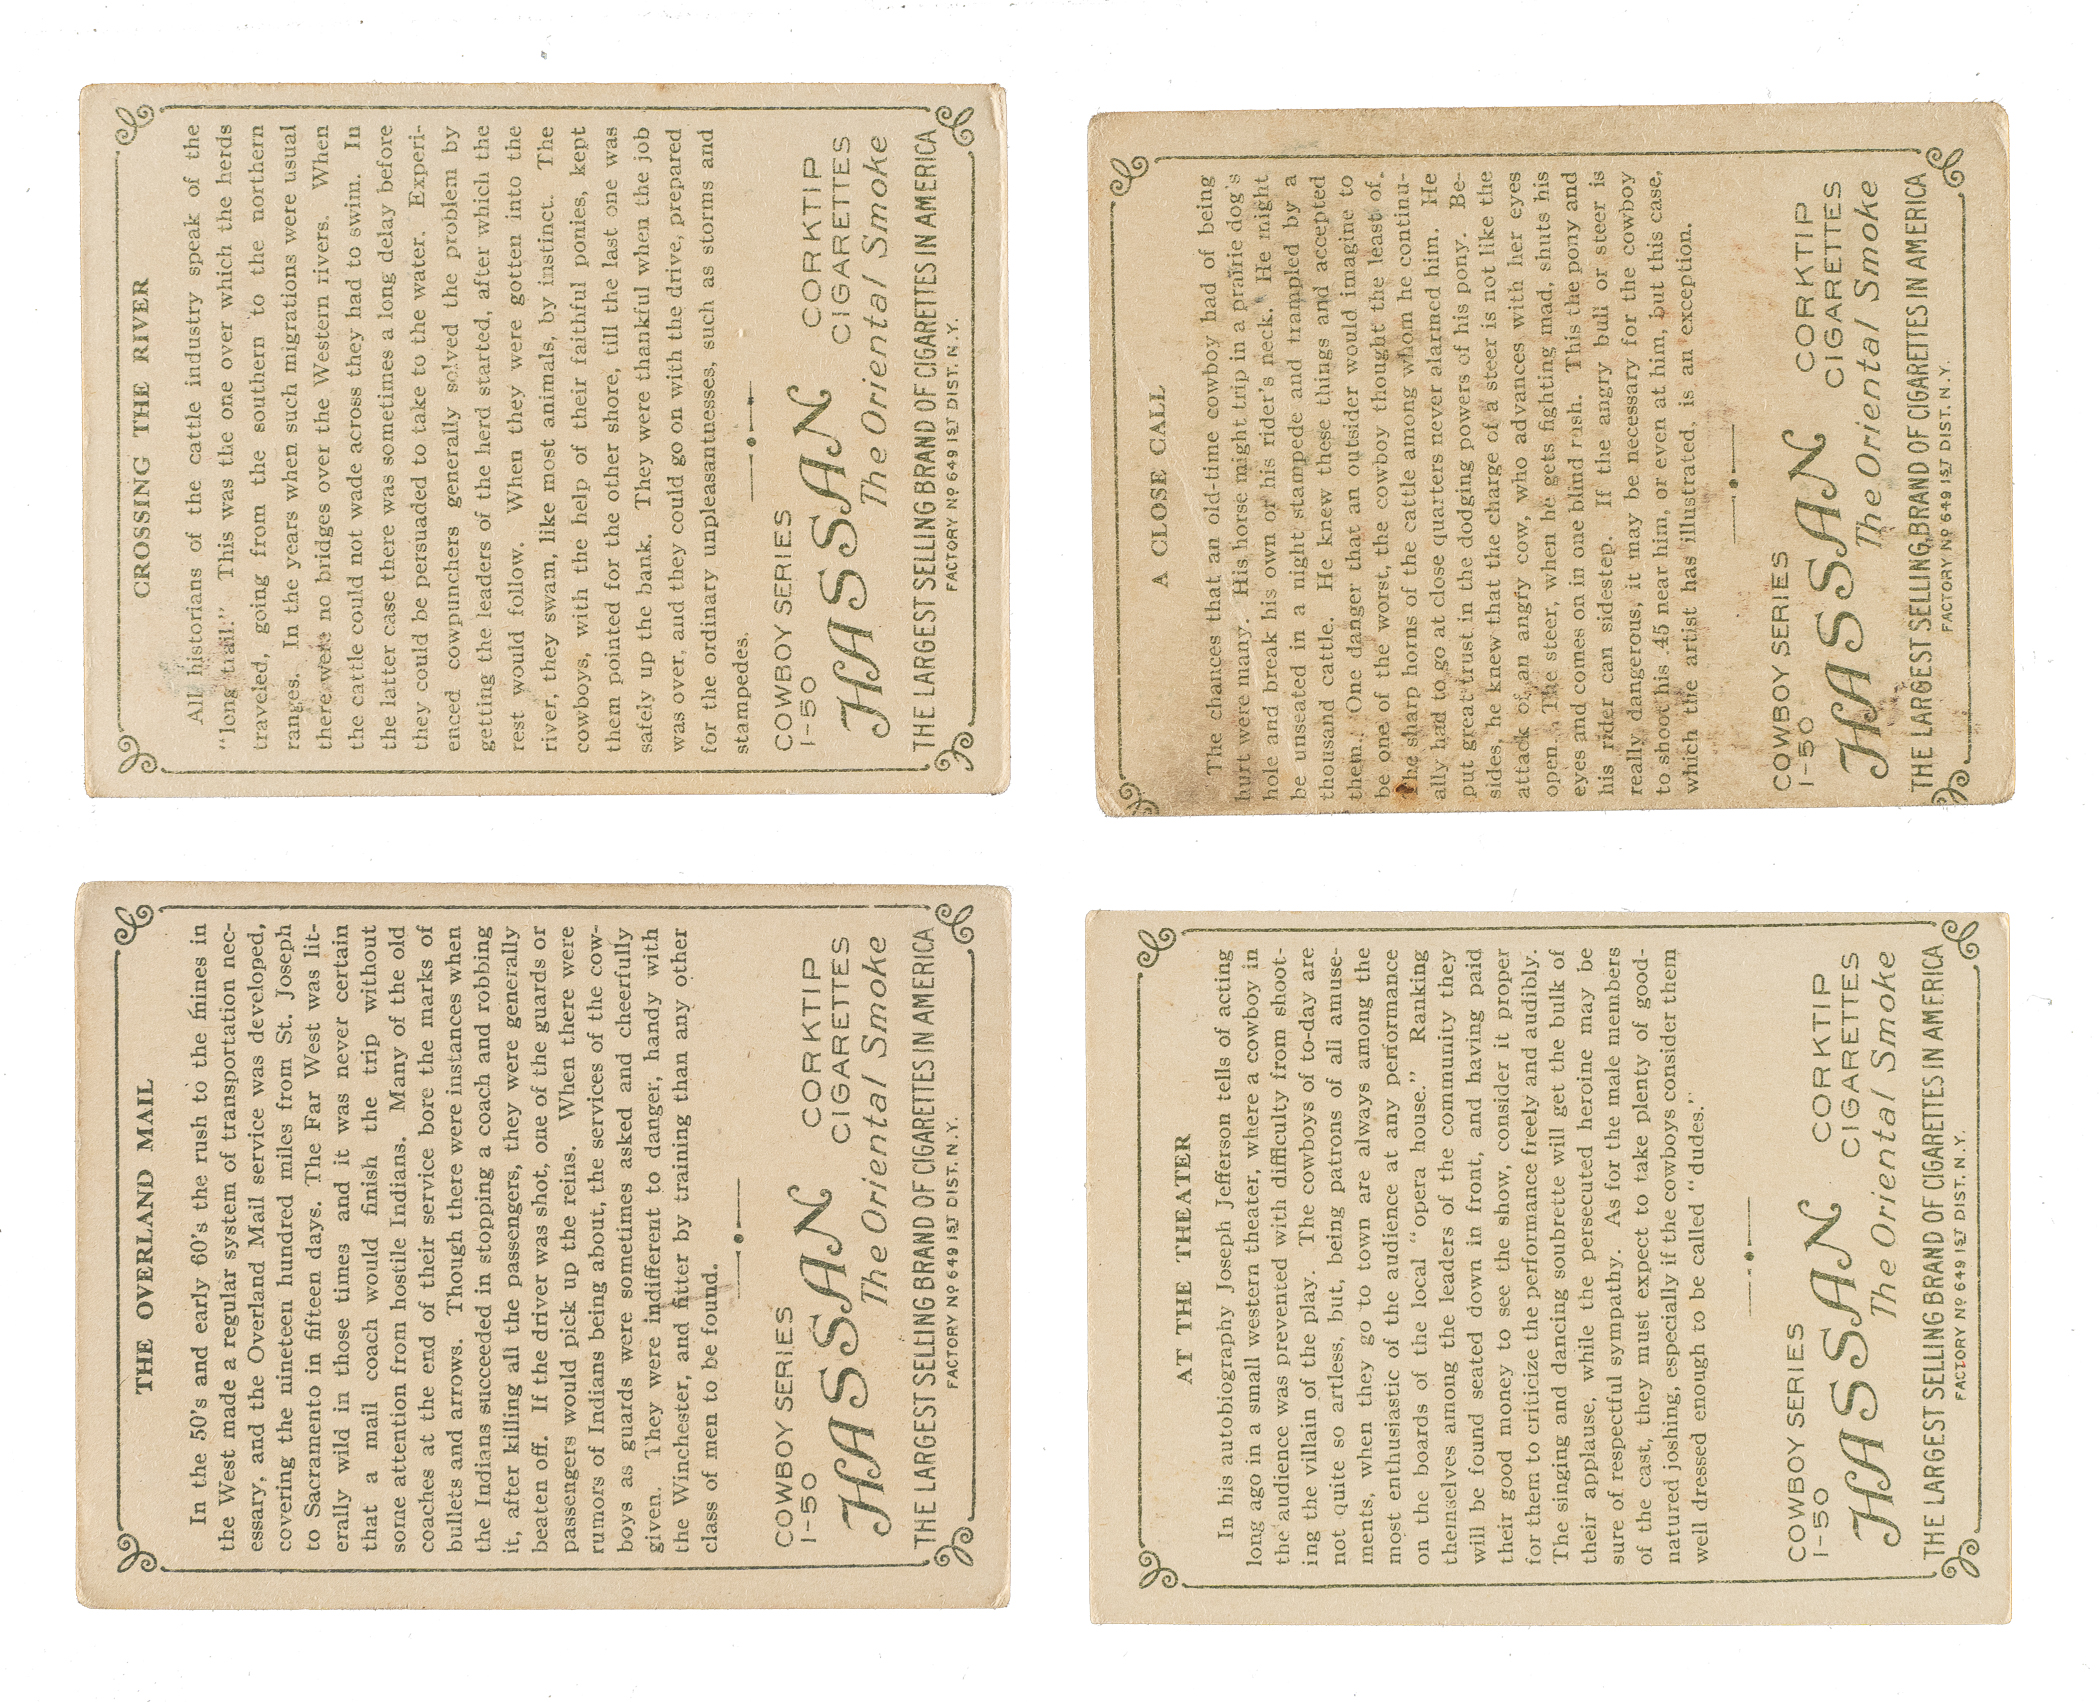 CROSSING THE RIVER
All historians of the cattle industry speak of the
"long trail." This was the one over which the herds
traveled, going from the southern to the northern
ranges. In the years when such migrations were usual
there were no bridges over the Western rivers. When
the cattle could not wade across they had to swim. In
the latter case there was sometimes a long delay before
they could be persuaded to take to the water. Experi-
enced cowpunchers generally solved the problem by
getting the leaders of the herd started, after which the
rest would follow. When they were gotten into the
river, they swam, like most animals, by instinct. The
cowboys, with the help of their faithful ponies, kept
them pointed for the other shore, till the last one was
safely up the bank. They were thankful when the job
was over, and they could go on with the drive, prepared
for the ordinary unpleasantnesses, such as storms and
stampedes.
COWBOY SERIES
1-50
HASSAN
CORKTIP
CIGARETTES
The Oriental Smoke
THE LARGEST SELLING BRAND OF CIGARETTES IN AMERICA
FACTORY Nº 649 1ST DIST. N.Y.
A CLOSE CALL
The chances that an old-time cowboy had of being
hurt were many. His horse might trip in a prairie dog's
hole and break his own or his rider's neck. He might
be unseated in a night stampede and trampled by a
thousand cattle. He knew these things and accepted
them. One danger that an outsider would imagine to
be one of the worst, the cowboy thought the least of.
The sharp horns of the cattle among whom he continu-
ally had to go at close quarters never alarmed him. He
put great trust in the dodging powers of his pony. Be-
sides, he knew that the charge of a steer is not like the
attack of an angry cow, who advances with her eyes
open. The steer, when he gets fighting mad, shuts his
eyes and comes on in one blind rush. This the pony and
his rider can sidestep. If the angry bull or steer is
really dangerous, it may be necessary for the cowboy
to shoot his .45 near him, or even at him, but this case,
which the artist has illustrated, is an exception.
COWBOY SERIES
1-50
HASSAN
CORKTIP
CIGARETTES
The Oriental Smoke
THE LARGEST SELLING BRAND OF CIGARETTES IN AMERICA
FACTORY Nº 649 1ST DIST. N.Y.
THE OVERLAND MAIL
In the 50's and early 60's the rush to the mines in
the West made a regular system of transportation nec-
essary, and the Overland Mail service was developed,
covering the nineteen hundred miles from St. Joseph
to Sacramento in fifteen days. The Far West was lit-
erally wild in those times and it was never certain
that a mail coach would finish the trip without
some attention from hostile Indians. Many of the old
coaches at the end of their service bore the marks of
bullets and arrows. Though there were instances when
the Indians succeeded in stopping a coach and robbing
it, after killing all the passengers, they were generally
beaten off. If the driver was shot, one of the guards or
passengers would pick up the reins. When there were
rumors of Indians being about, the services of the cow-
boys as guards were sometimes asked and cheerfully
given. They were indifferent to danger, handy with
the Winchester, and fitter by training than any other
class of men to be found.
COWBOY SERIES
1-50
HASSAN
CORKTIP
CIGARETTES
The Oriental Smoke
THE LARGEST SELLING BRAND OF CIGARETTES IN AMERICA
FACTORY Nº 649 1ST DIST. N.Y.
AT THE THEATER
In his autobiography Joseph Jefferson tells of acting
long ago in a small western theater, where a cowboy in
the audience was prevented with difficulty from shoot-
ing the villain of the play. The cowboys of to-day are
not quite so artless, but, being patrons of all amuse-
ments, when they go to town are always among the
most enthusiastic of the audience at any performance
on the boards of the local "opera house." Ranking
themselves among the leaders of the community they
will be found seated down in front, and having paid
their good money to see the show, consider it proper
for them to criticize the performance freely and audibly.
The singing and dancing soubrette will get the bulk of
their applause, while the persecuted heroine may be
sure of respectful sympathy. As for the male members
of the cast, they must expect to take plenty of good-
natured joshing, especially if the cowboys consider them
well dressed enough to be called "dudes."
COWBOY SERIES
1-50
HASSAN
CORKTIP
CIGARETTES
The Oriental Smoke
THE LARGEST SELLING BRAND OF CIGARETTES IN AMERICA
FACTORY Nº 649 1ST DIST. N.Y.